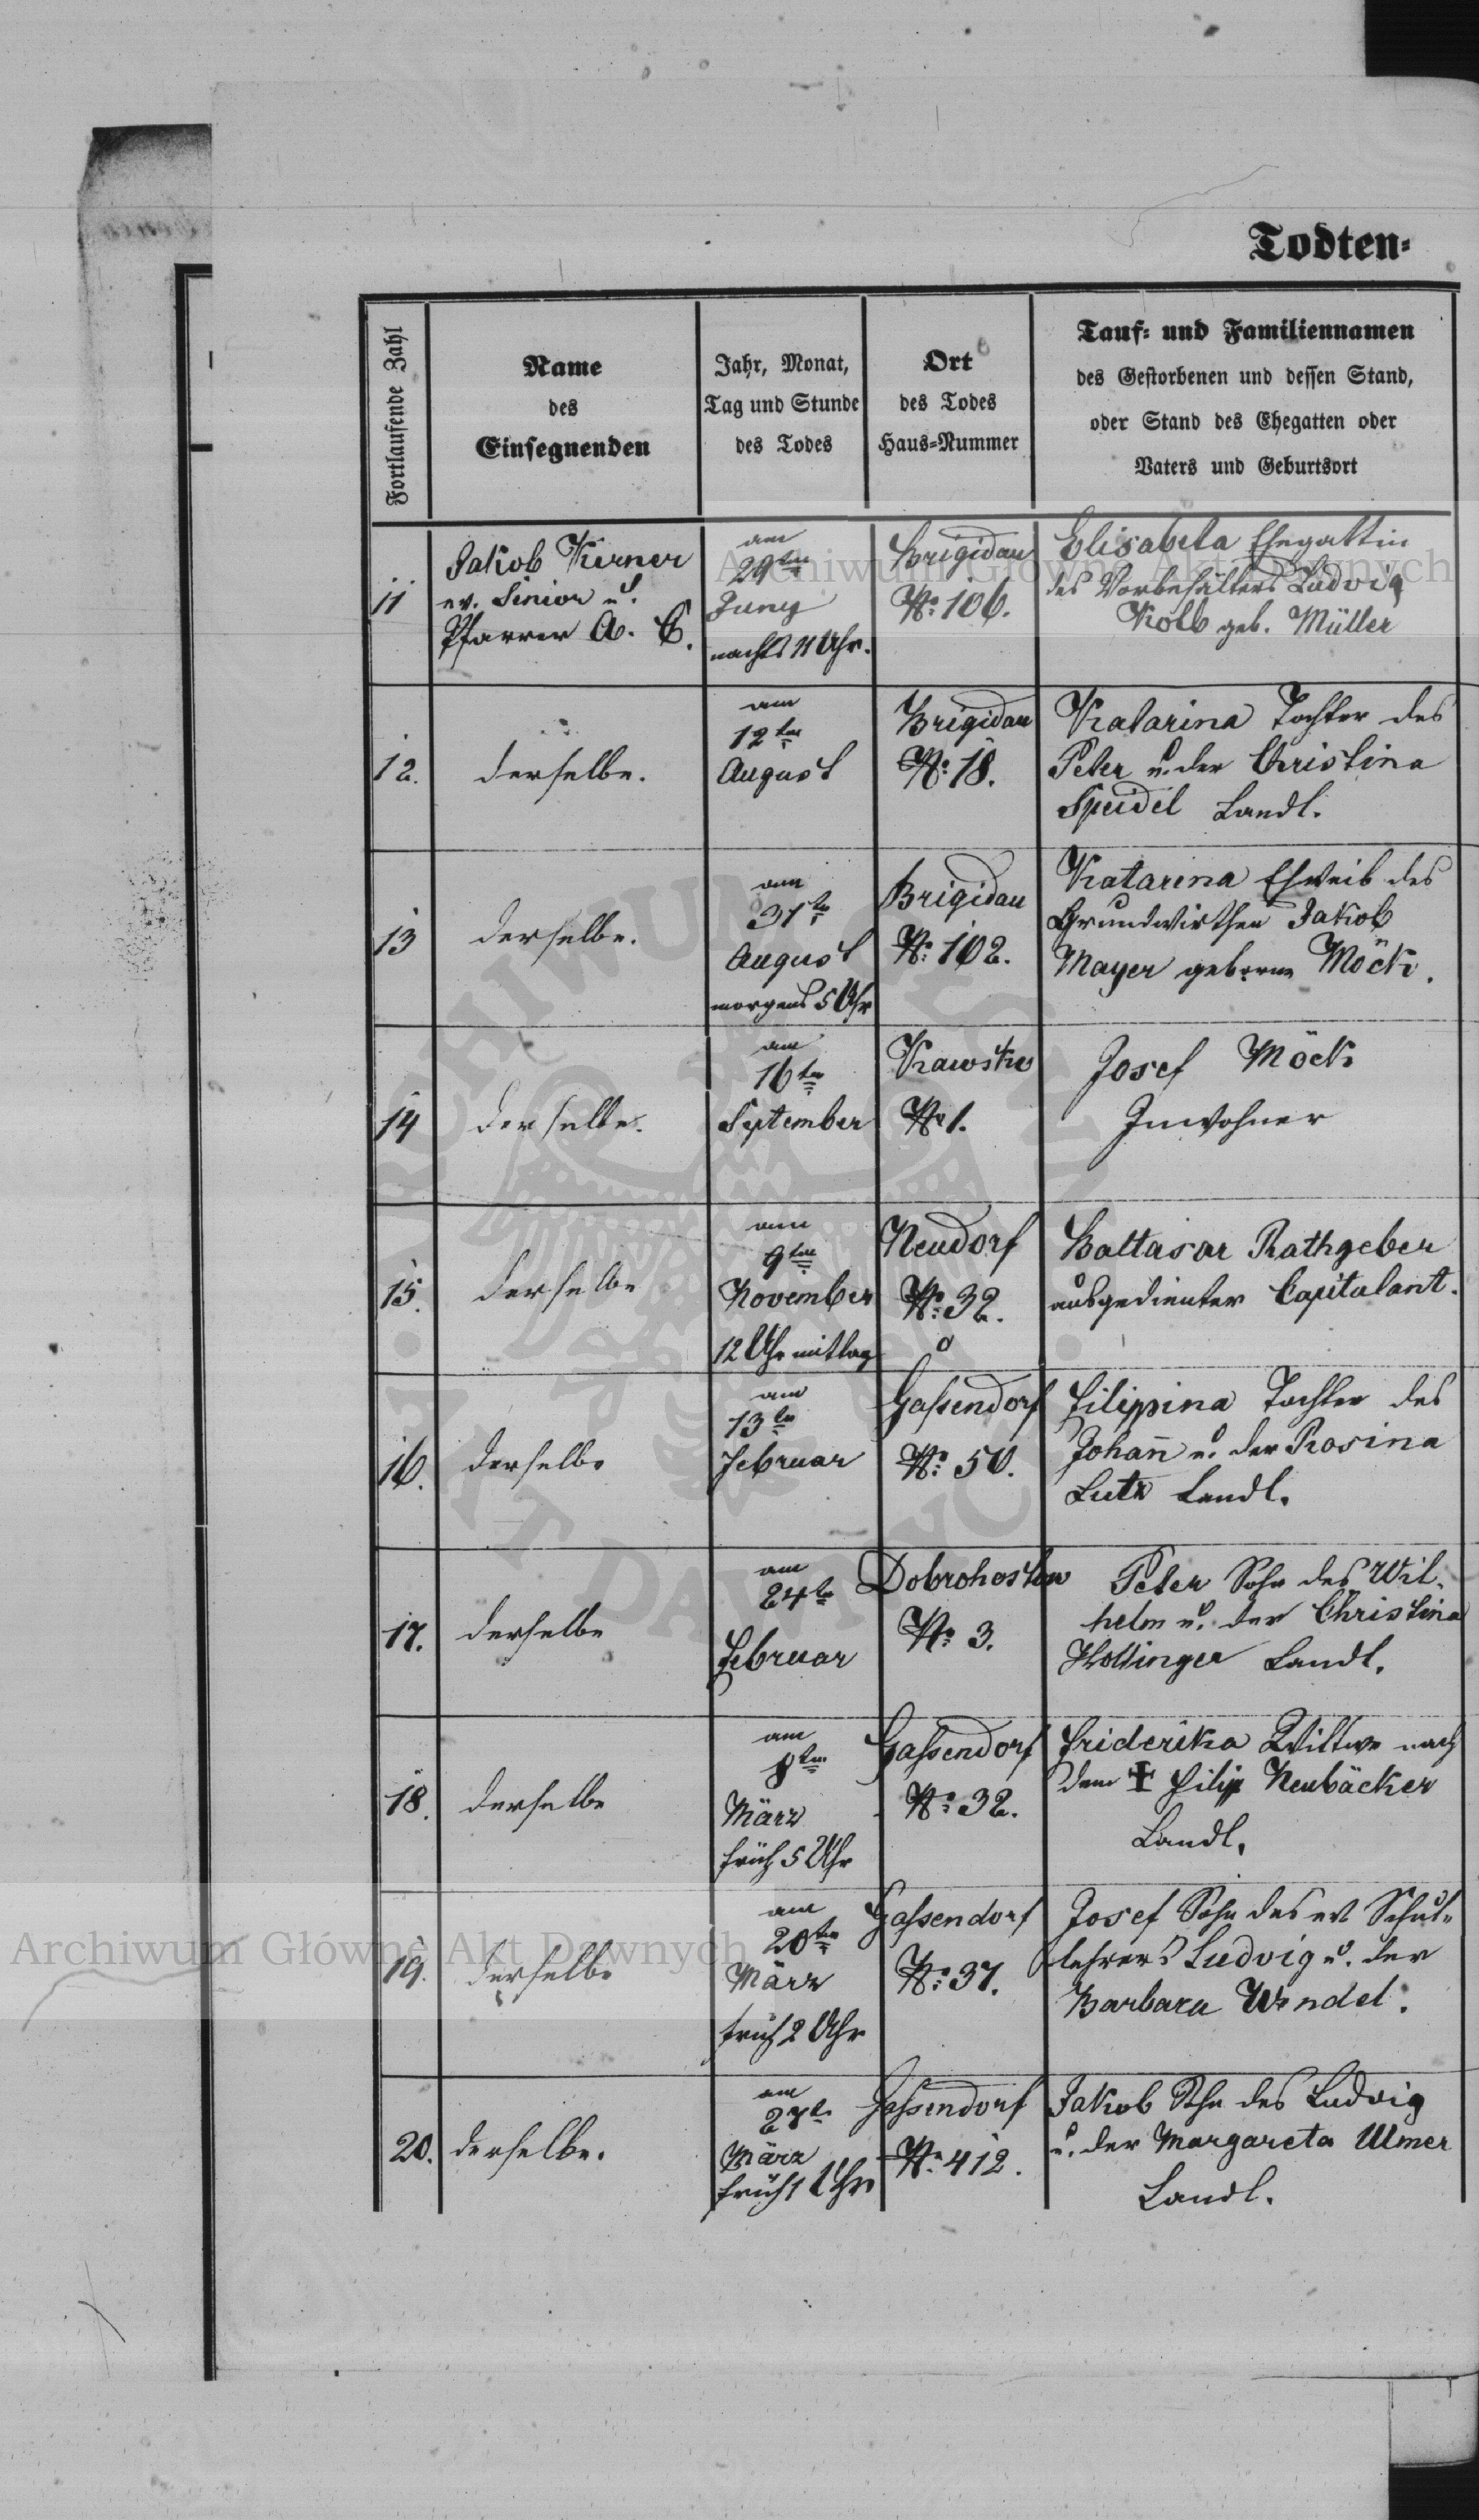 Todten-
Fortlaufende Zahl
Name
des
Einsegnenden
Jahr, Monat,
Tag und Stunde
des Todes
Ort
des Todes
Haus-Nummer
Tauf- und Familiennamen
des Gestorbenen und dessen Stand,
oder Stand des Ehegatten oder
Vaters und Geburtsort
11
Jakob Kerner
ev. Senior u.
Pfarrer A. C.
am
29ten
Juny
nachts 11 Uhr.
Brigidau
No: 106.
Elisabeta Ehegattin
des Vorbehälters Ludvig
Kolb geb. Müller
12.
derselbe.
am
12ten
August
Brigidau
No: 18.
Katarina Tochter des
Peter u. der Christina
Speidel Landl.
13
derselbe.
am
31te
August
morgens 5 Uhr
Brigidau
No: 102.
Katarina Eheweib des
Grundwirthen Jakob
Mayer geborne Möck.
14
derselbe.
am
16ten
September
No 1.
Josef Möck
Inwohner
15.
derselbe
am
9ten
November
12 Uhr mittag
Neudorf
No: 32.
Baltasar Rathgeber
ausgedienter Capitulant.
16.
derselbe
am
13te
Februar
Gassendorf
No: 50.
Filippina Tochter des
Johan̄ u. der Rosina
Lutz Landl.
17.
derselbe
am
24te
Februar
Dobrohostow
No: 3.
Peter Sohn des Wil-
helm u. der Christina
Hollinger Landl.
18.
derselbe
am
8ten
März
früh 5 Uhr
Gassendorf
No: 32.
Friderika Wittwe nach
dem ✠ Filip Neubäcker
Landl.
19.
derselbe
am
20ten
März
früh 2 Uhr
Gassendorf
No: 37.
Josef Sohn des ev Schul-
lehrers Ludvig u. der
Barbara Wendel.
20.
derselbe.
am
27te
März
früh 1 Uhr
Gassendorf
No: 412.
Jakob Sohn des Ludvig
u. der Margareta Ulmer
Landl.
Archiwum Główne Akt Dawnych
Archiwum Główne Akt Dawnych
ARCHIWUM GŁÓWNE AKT DAWNYCH